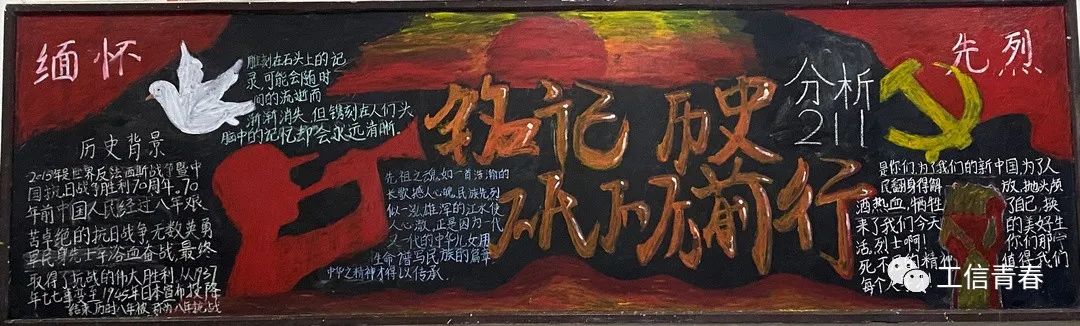 缅怀
先烈
雕刻在石头上的记
录,可能会随时
间的流逝而
渐渐消失,但镌刻在人们头
脑中的记忆却会永远清晰.
铭记 历史
砥砺前行
分析
211
历史背景
2015年是世界反法西斯战争暨中
国抗日战争胜利70周年。70
年前中国人民经过八年艰
苦卓绝的抗日战争,无数英勇
军民身先士卒浴血奋战,最终
取得了抗战的伟大胜利,从1937
年七七事变至1945年日本宣布投降
结束,历时八年被称为八年抗战
先祖之魂,如一首浩瀚的
长歌,撼人心魄,民族先列
似一泓雄浑的江水使
人心激,正是因为一代
又一代的中华儿女用
生命谱写民族的篇章
中华之精神才得以传承.
是你们,为了我们的新中国,为了人
民翻身得解放,抛头颅
洒热血,牺牲了自己,换
来了我们今天的美好生
活,烈士啊!你们那宁
死不的精神值得我们
每个人
工信青春